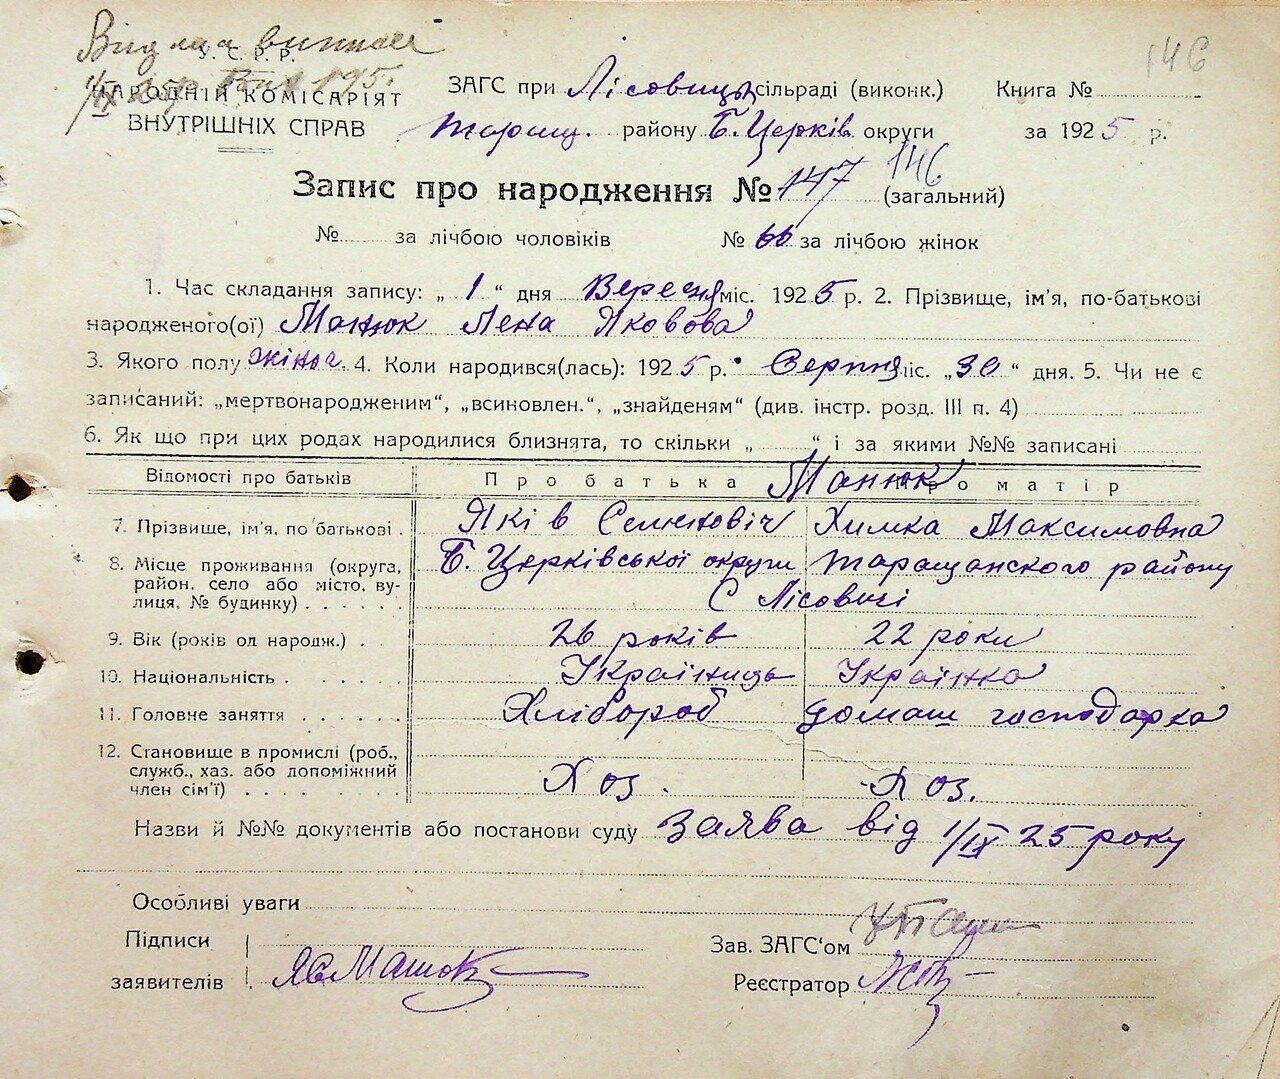 Видана виписка
146
У. С. Р. Р.
1/IX 25р.
НАРОДНІЙ КОМІСАРІЯТ
ВНУТРІШНІХ СПРАВ
ЗАГС при Лісовицьк сільраді (виконк.) Книга №
Таращ. району Б. Церків округи за 1925 р.
Запис про народження № 147 146 (загальний)
№ за лічбою чоловіків № 66 за лічбою жінок
1. Час складання запису: „ 1 “ дня Вересня міс. 1925 р. 2. Прізвище, ім'я, по-батькові
народженого(ої) Манюк Лена Яковова
3. Якого полу жіноч. 4. Коли народився(лась): 1925 р. Серпня міс. „30“ дня. 5. Чи не є
записаний: „мертвонародженим“, „всиновлен.“, „знайденям“ (див. інстр. розд. III п. 4)
6. Як що при цих родах народилися близнята, то скільки „ “ і за якими №№ записані
Відомості про батьків Про батька Про матір
Манюк
7. Прізвище, ім'я, по батькові . Яків Семенович Химка Максимовна
8. Місце проживання (округа, Б. Церківської округи Таращанского району
район, село або місто, ву-
лиця, № будинку) . . . . . . С Лісовичі
9. Вік (років од народж.) . 26 років 22 роки
10. Національність . . . . . . Українець Українка
11. Головне заняття . . . . . . Хлібороб домаш господарка
12. Становище в промислі (роб.,
служб., хаз. або допоміжний
член сім'ї) . . . . . . . . Хоз. Хоз.
Назви й №№ документів або постанови суду Заява від 1/IX 25 року
Особливі уваги
Підписи
заявителів Я С Манюк
Зав. ЗАГС'ом
Реєстратор